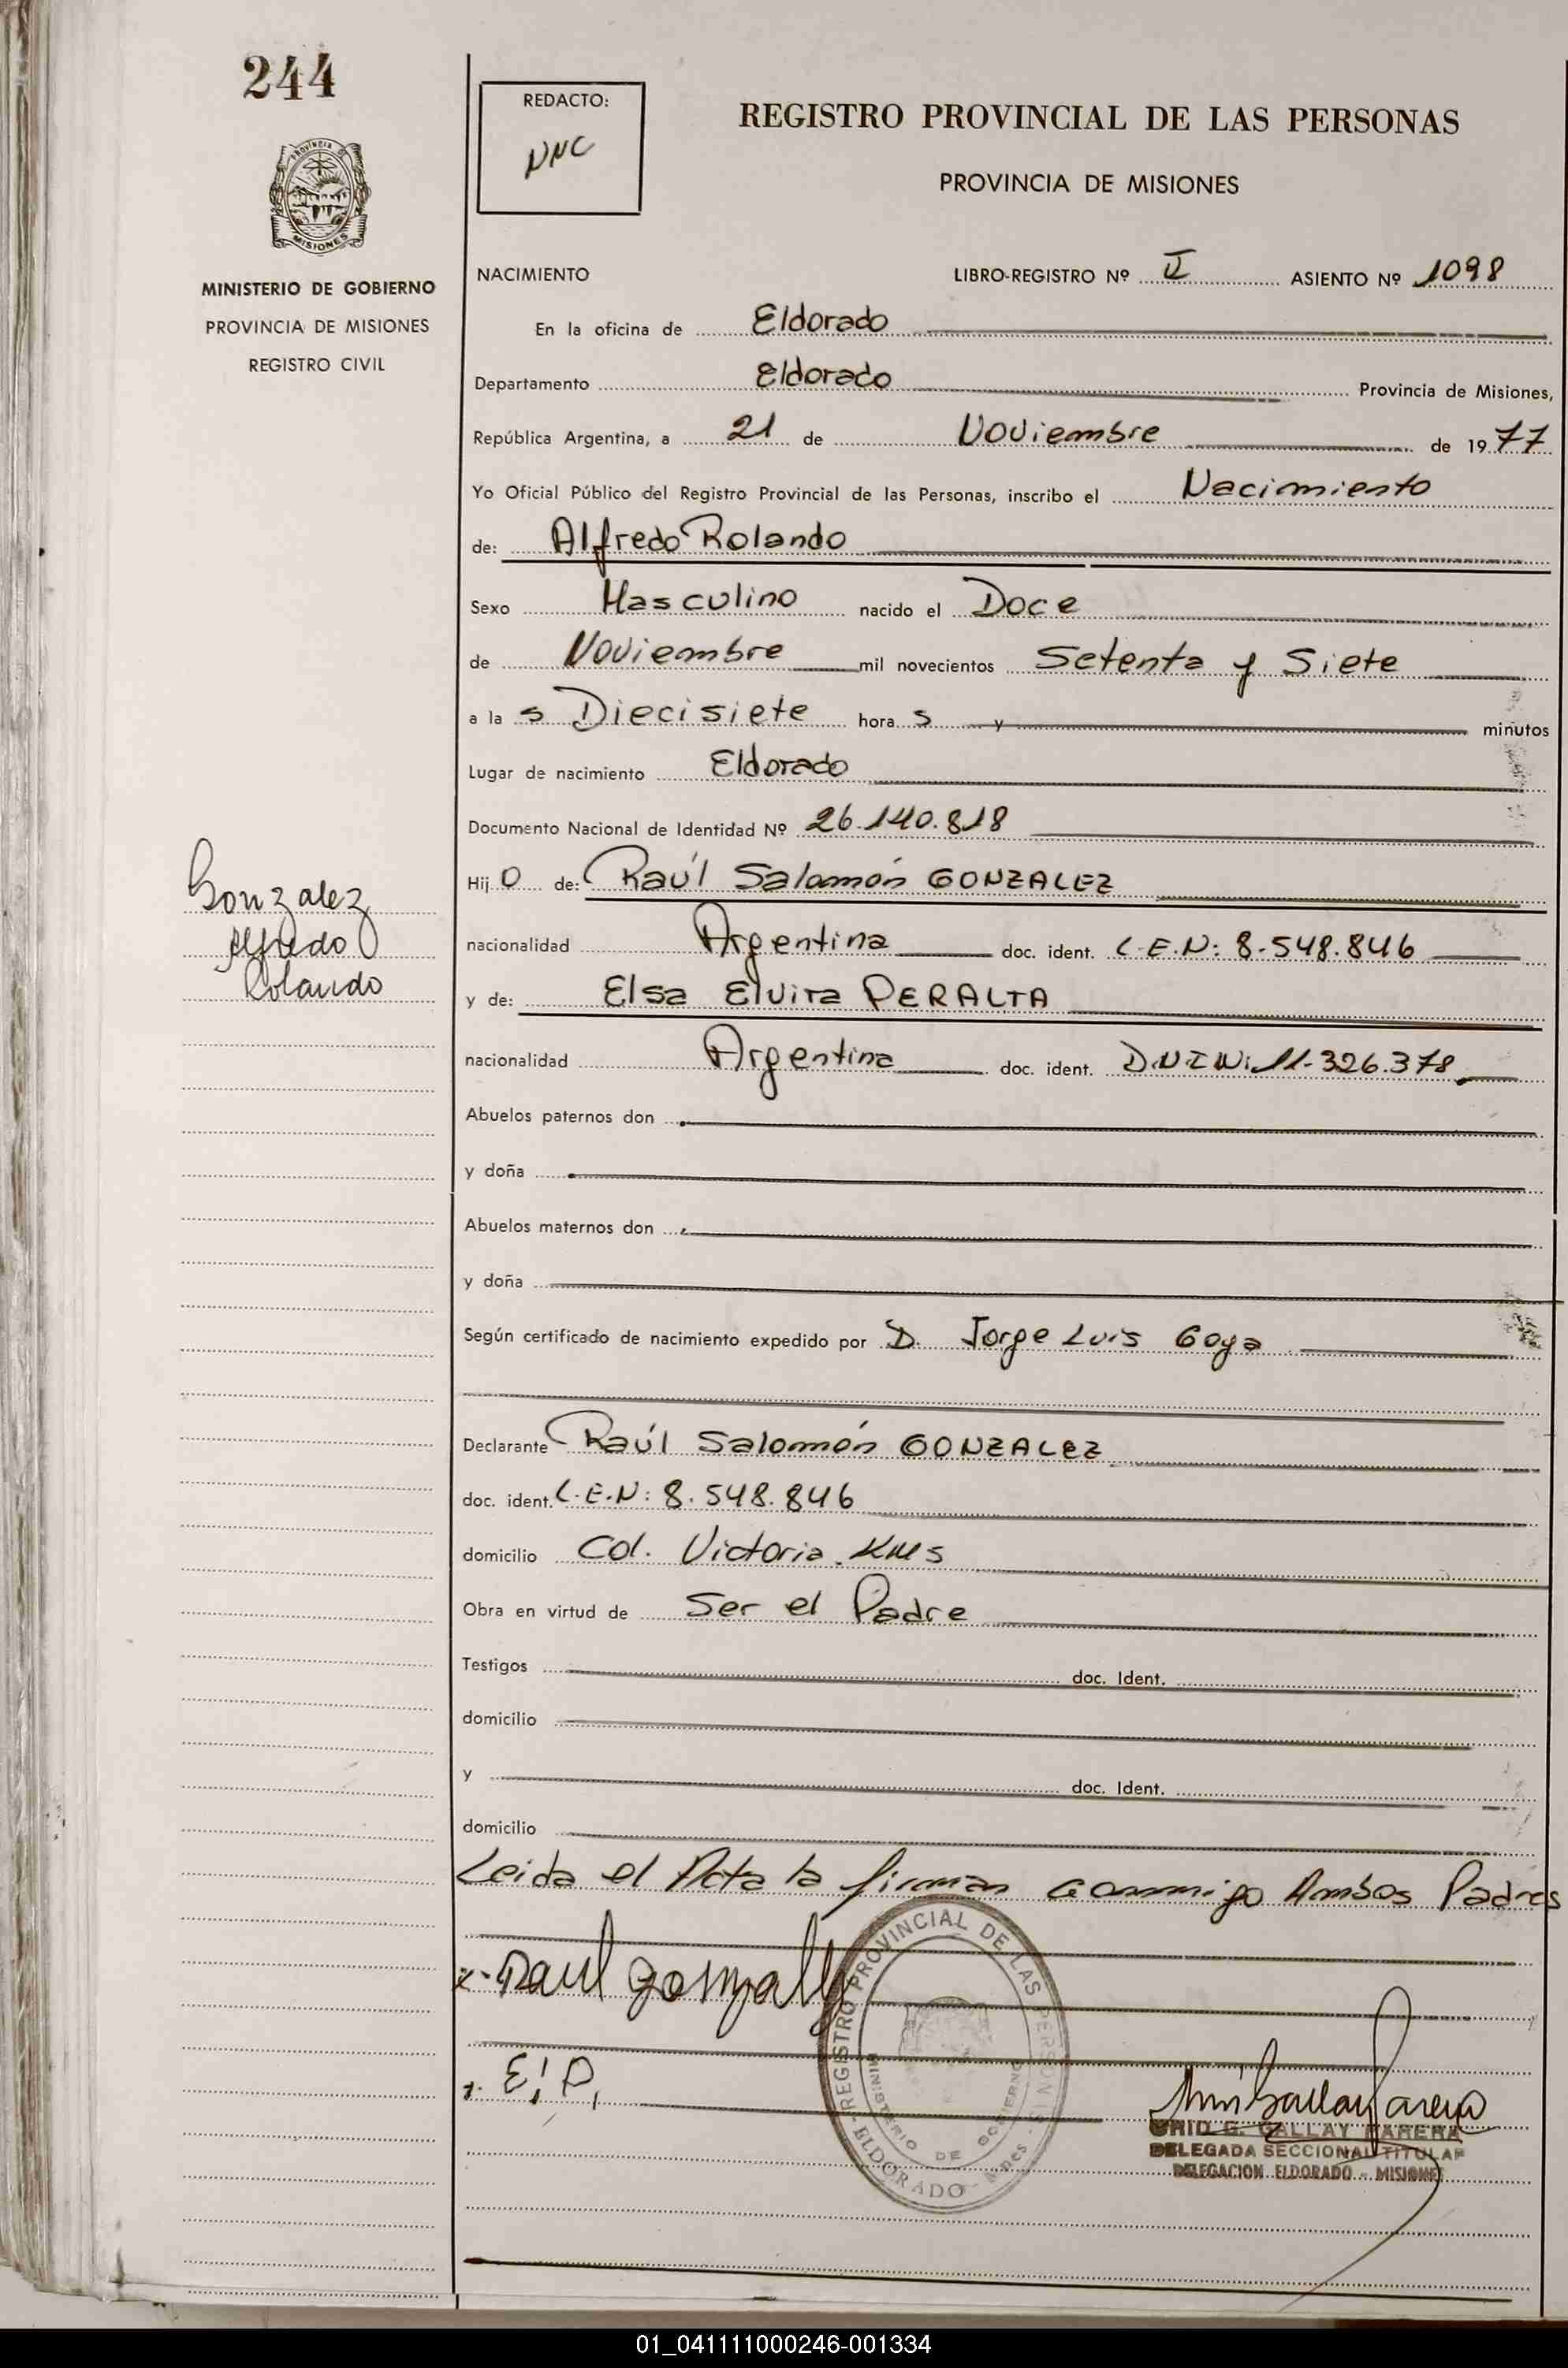 244
REDACTO:
NNC
REGISTRO PROVINCIAL DE LAS PERSONAS
PROVINCIA DE MISIONES
PROVINCIA D
MISIONES
MINISTERIO DE GOBIERNO
PROVINCIA DE MISIONES
REGISTRO CIVIL
NACIMIENTO LIBRO-REGISTRO Nº II ASIENTO Nº 1098
En la oficina de Eldorado
Departamento Eldorado Provincia de Misiones,
República Argentina, a 21 de Noviembre de 1977
Yo Oficial Público del Registro Provincial de las Personas, inscribo el Nacimiento
de: Alfredo Rolando
Sexo Masculino nacido el Doce
de Noviembre mil novecientos Setenta y Siete
a la s Diecisiete hora s y minutos
Lugar de nacimiento Eldorado
Documento Nacional de Identidad Nº 26.140.818
Hij o de: Raúl Salomón GONZALEZ
Gonzalez
Alfredo
Rolando
nacionalidad Argentina doc. ident. L.E.N: 8.548.846
y de: Elsa Elvira PERALTA
nacionalidad Argentina doc. ident. D.N.I.N: 11.326.378
Abuelos paternos don
y doña
Abuelos maternos don
y doña
Según certificado de nacimiento expedido por D. Jorge Luis Goya
Declarante Raúl Salomón GONZALEZ
doc. ident. L.E.N: 8.548.846
domicilio Col. Victoria
Obra en virtud de Ser el Padre
Testigos doc. Ident.
domicilio
y doc. Ident.
domicilio
Leida el Acta la firman conmigo Ambos Padres
x. Raul Gonzalez
E. P.
REGISTRO PROVINCIAL DE LAS PERSONAS
MINISTERIO DE GOBIERNO
ELDORADO - Mnes -
G. GALLAY PARERA
DELEGADA SECCIONAL TITULAR
DELEGACION ELDORADO - MISIONES
01_041111000246-001334